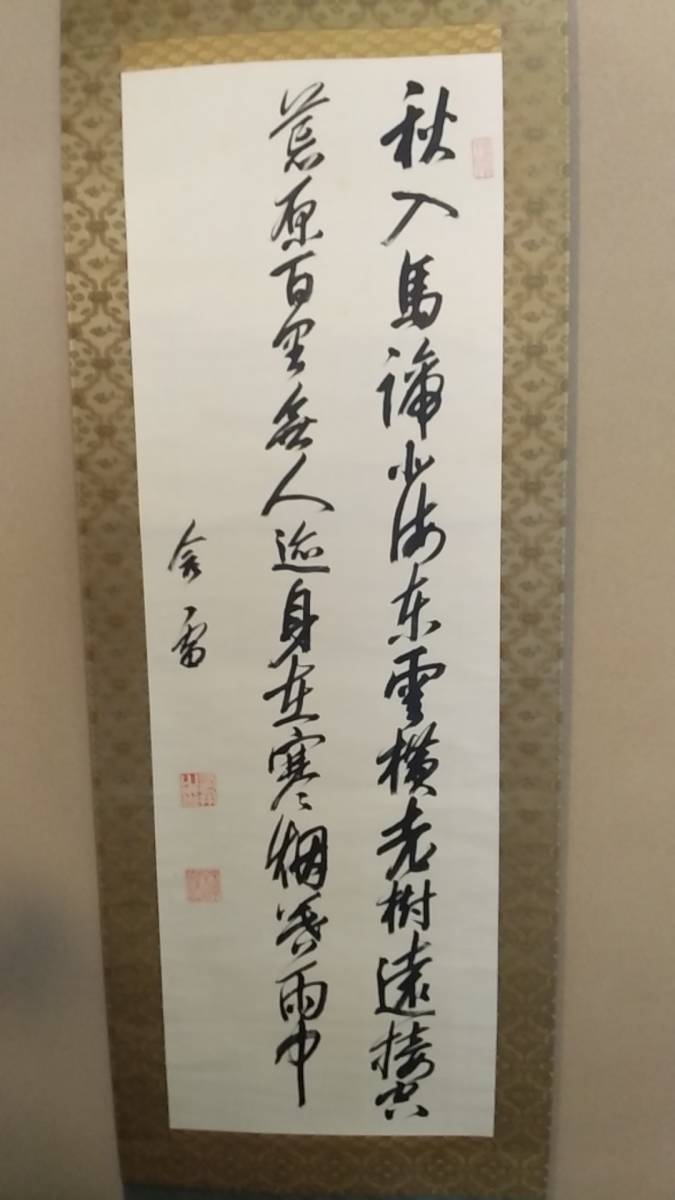 秋入馬蹄北海東雲横老樹遠接空
荒原百里無人迹身在寒烟暮雨中
雷